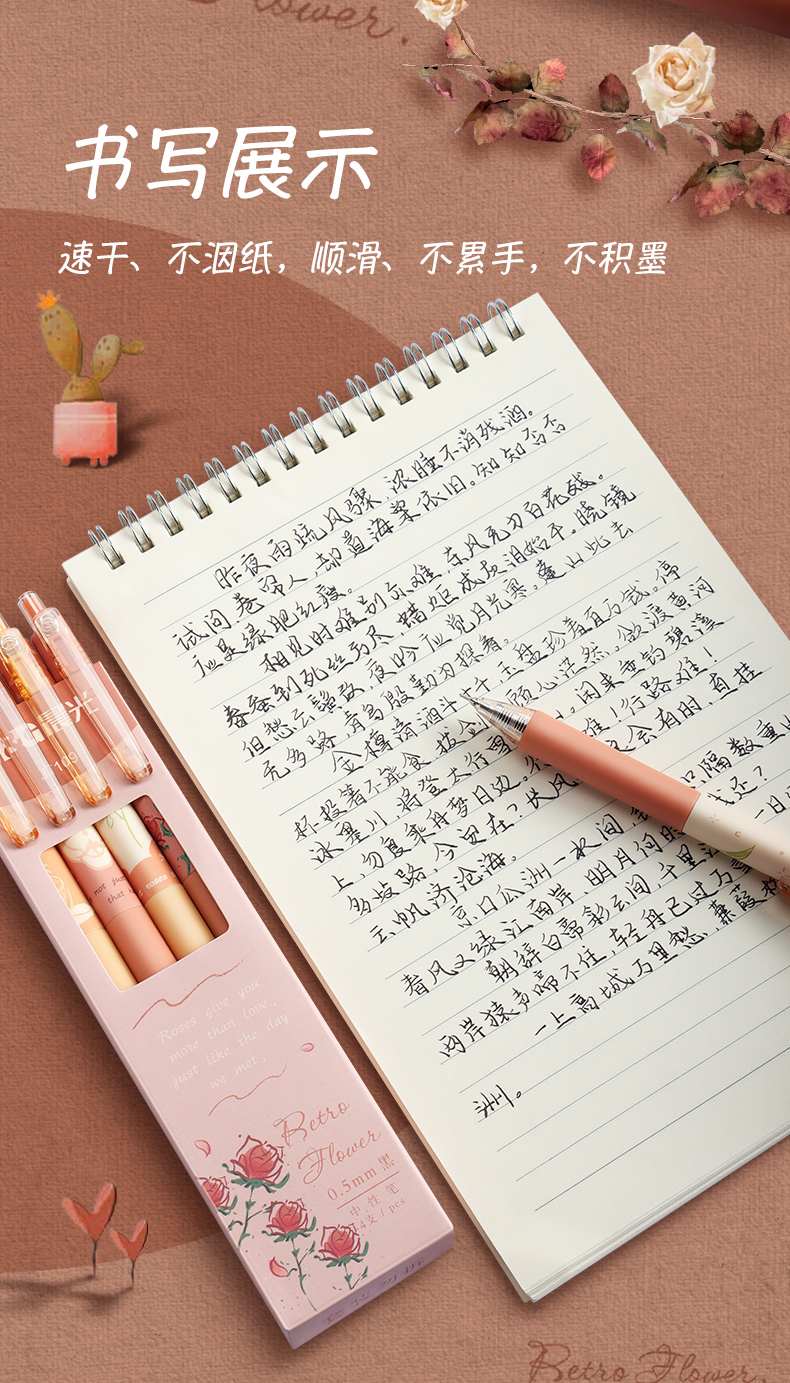 Flower.
书写展示
速干、不洇纸，顺滑、不累手，不积墨
昨夜雨疏风骤，浓睡不消残酒。
试问卷帘人，却道海棠依旧。知否知否
应是绿肥红瘦。
相见时难别亦难，东风无力百花残。
春蚕到死丝方尽，蜡炬成灰泪始干。晓镜
但愁云鬓改，夜吟应觉月光寒。蓬山此去
无多路，青鸟殷勤为探看。
金樽清酒斗十千，玉盘珍羞直万钱。停
杯投箸不能食，拔 顾心茫然。欲渡黄河
冰塞川，将登太行雪 。闲来垂钓碧溪
上，忽复乘舟梦日边。 难！行路难！
多歧路，今安在？长风 会有时，直挂
云帆济沧海。
京口瓜洲一水间， 隔数重山
春风又绿江南岸，明月何时 还？
朝辞白帝彩云间，千里 一日
两岸猿声啼不住，轻舟已过万
一上高城万里愁，蒹葭杨
洲。
晨光
109
not just
that
roses
Roses give you
more than love,
just like the day
we met.
Retro
Flower
0.5mm 黑
中性笔
4支/pcs
Retro Flower.